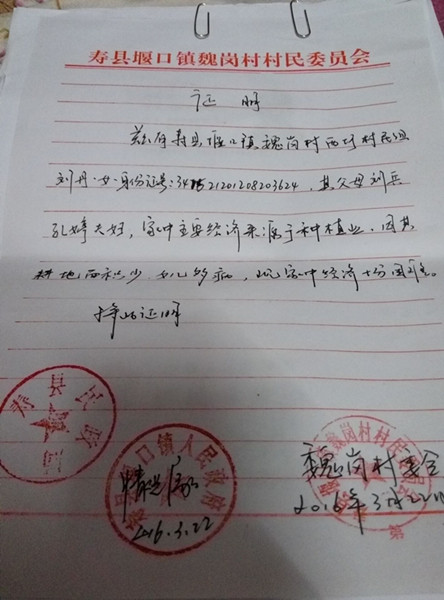 寿县堰口镇魏岗村村民委员会
证明
兹有寿县堰口镇魏岗村西圩村民组
刘丹，女，身份证号：34 21201208203624，其父母刘兵
夫妇，家中主要经济来源于种植业，因其
耕地面积少，女儿多病，家中经济十分困难。
特此证明
寿县民政
堰口镇人民政府
情况属实
2016.3.22
魏岗村委会
2016年3月22日